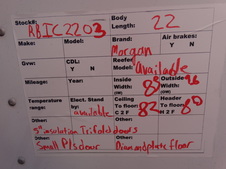 Stock#: RBIC2203
Body Length: 22
Make:
Model:
Brand: Morgan
Air brakes: Y N
Gvw:
CDL: Y N
Reefer Model: Available
Mileage:
Year:
Inside Width:
Outside Width: 96
Temperature range:
Elect. Stand by: available
Ceiling To floor: C 2 F 82
Header To floor: H 2 F 80
Other:
Other:
insulation Trifold doors
Other: Small P/s door
Other: Diamondplate floor